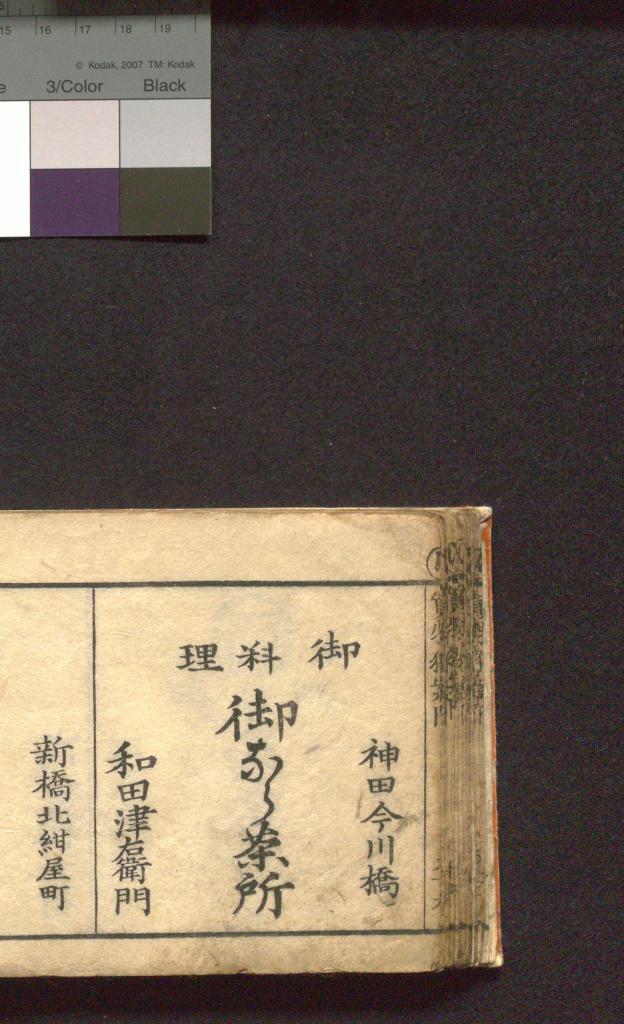 15 16 17 18 19
© Kodak, 2007 TM: Kodak
3/Color Black
神田今川橋
御料理
御なら茶所
和田津右衛門
新橋北紺屋町